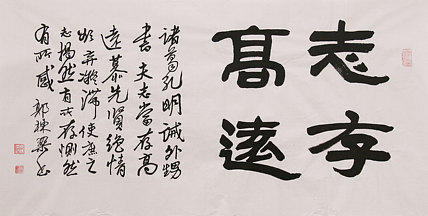 志存
高遠
諸葛孔明誡外甥
書 夫志當存高
遠慕先賢絕情
欲弃凝滯使庶之
志揭然有所存惻然
有所感 郭棟梁